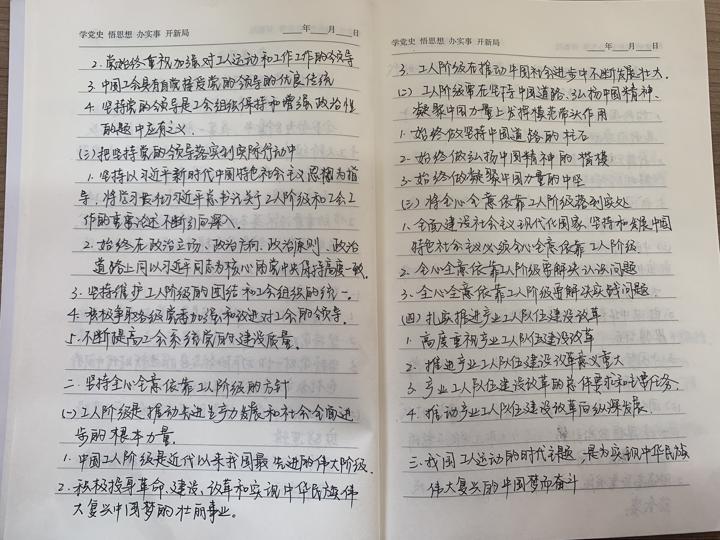 学党史 悟思想 办实事 开新局
年 月 日
2. 党始终重视加强对工人运动和工会工作的领导
3. 中国工会具有自觉接受党的领导的优良传统
4. 坚持党的领导是工会组织保持和增强政治性
的题中应有之义
(三)把坚持党的领导落实到实际行动中
1. 坚持以习近平新时代中国特色社会主义思想为指
导,将学习贯彻习近平总书记关于工人阶级和工会工
作的重要论述不断引向深入。
2. 始终在政治立场、政治方向、政治原则、政治
道路上同以习近平同志为核心的党中央保持高度一致。
3. 坚持维护工人阶级的团结和工会组织的统一。
4. 积极争取各级党委加强和改进对工会的领导。
5. 不断提高工会系统党的建设质量。
二、坚持全心全意依靠工人阶级的方针
(一)工人阶级是推动先进生产力发展和社会全面进
步的根本力量。
1. 中国工人阶级是近代以来我国最先进的伟大阶级.
2. 积极投身革命、建设、改革和实现中华民族伟
大复兴中国梦的壮丽事业。
学党史 悟思想 办实事 开新局
年 月 日
3. 工人阶级在推动中国社会进步中不断发展壮大.
(二)工人阶级要在坚持中国道路、弘扬中国精神、
凝聚中国力量上发挥模范带头作用
1. 始终做坚持中国道路的柱石
2. 始终做弘扬中国精神的楷模
3. 始终做凝聚中国力量的中坚
(三)将全心全意依靠工人阶级落到实处
1. 全面建设社会主义现代化国家、坚持和发展中国
特色社会主义必须全心全意依靠工人阶级
2. 全心全意依靠工人阶级要解决认识问题
3. 全心全意依靠工人阶级要解决实践问题
(四)扎实推进产业工人队伍建设改革
1. 高度重视产业工人队伍建设改革
2. 推进产业工人队伍建设改革意义重大
3. 产业工人队伍建设改革的总体要求和主要任务.
4. 推动产业工人队伍建设改革向纵深发展
三、我国工人运动的时代主题,是为实现中华民族
伟大复兴的中国梦而奋斗